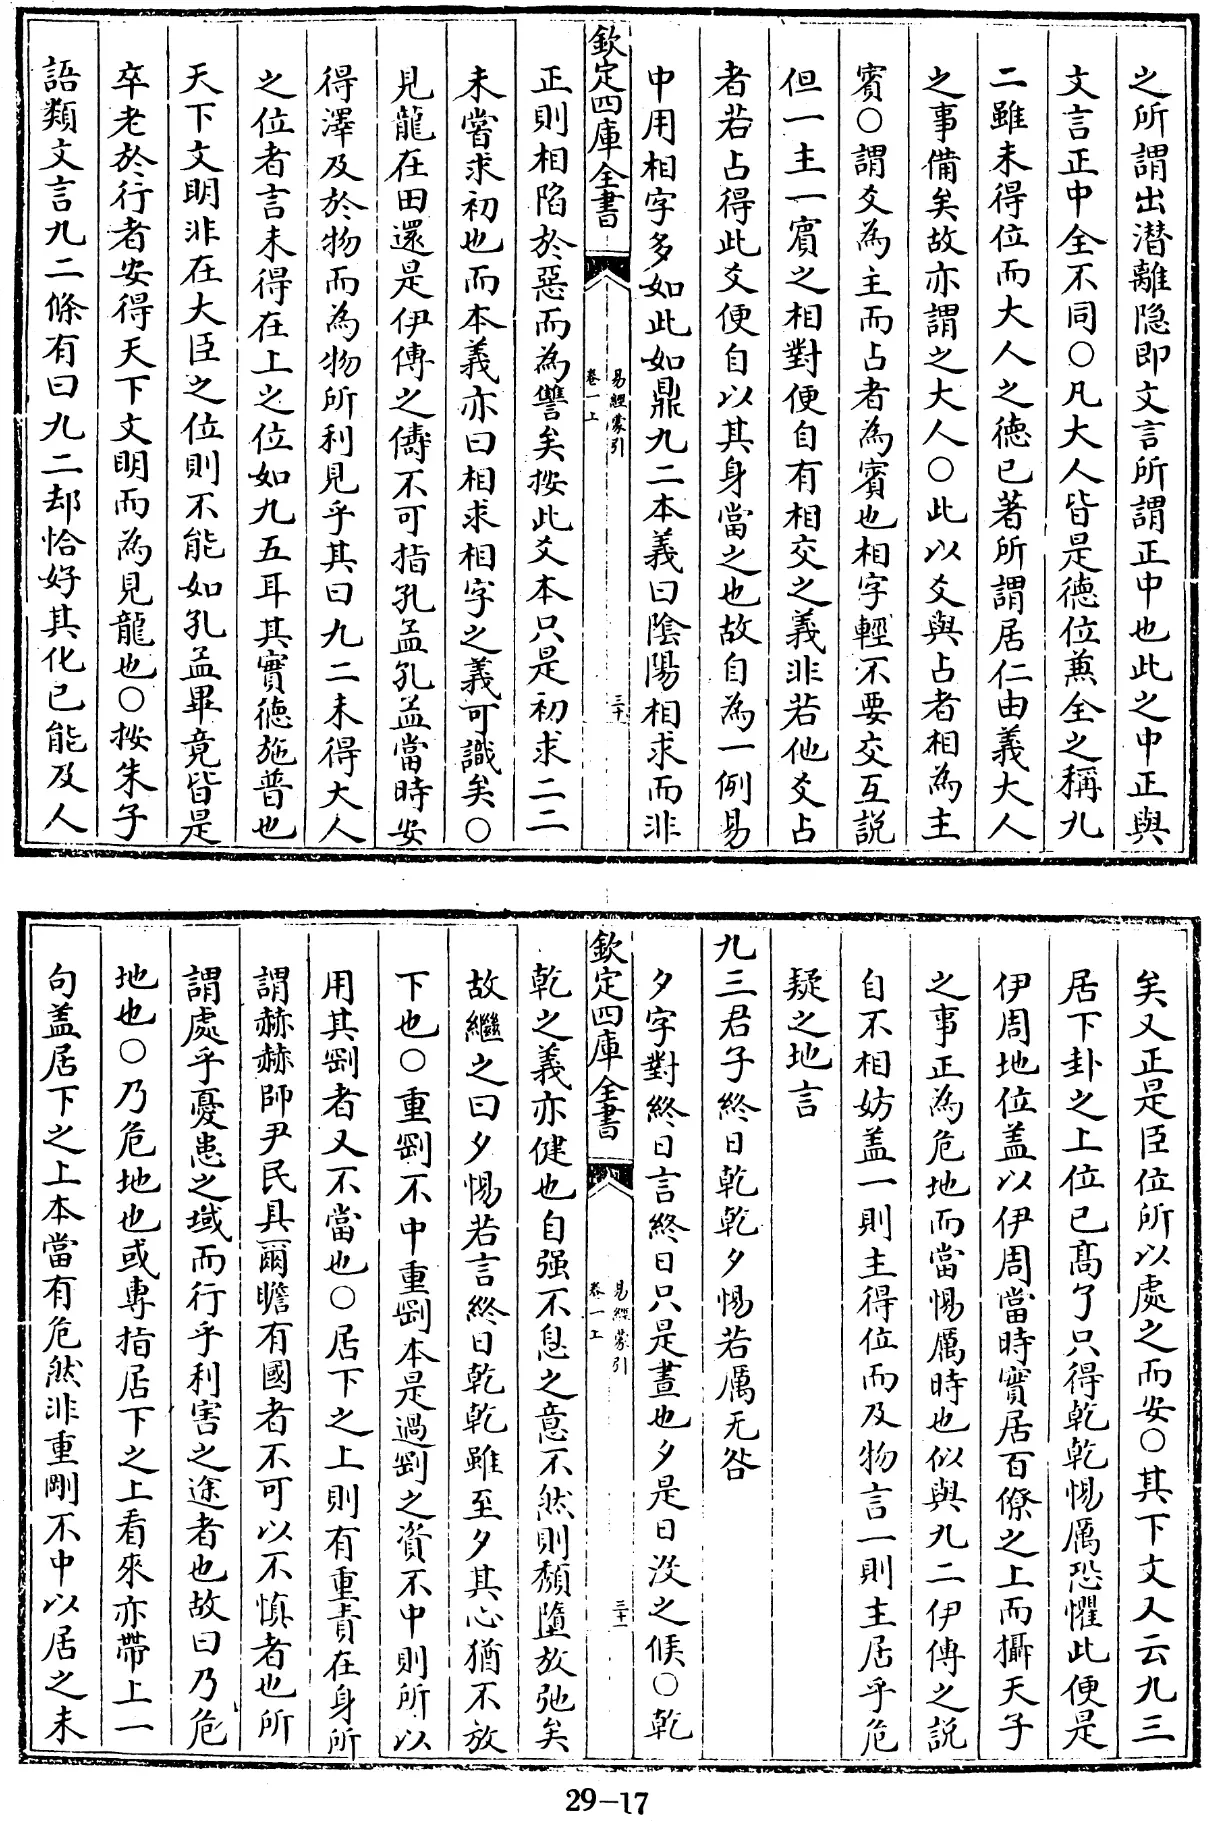 之所謂出潜離隐即文言所謂正中也此之中正與
文言正中全不同○凡大人皆是德位兼全之稱九
二雖未得位而大人之德已著所謂居仁由義大人
之事備矣故亦謂之大人○此以爻與占者相為主
賓○謂爻為主而占者為賓也相字輕不要交互説
但一主一賓之相對便自有相交之義非若他爻占
者若占得此爻便自以其身當之也故自為一例易
中用相字多如此如鼎九二本義曰陰陽相求而非
欽定四庫全書
易經蒙引
卷一上
三十
正則相陷於惡而為讐矣按此爻本只是初求二二
未嘗求初也而本義亦曰相求相字之義可識矣○
見龍在田還是伊傅之儔不可指孔孟孔孟當時安
得澤及於物而為物所利見乎其曰九二未得大人
之位者言未得在上之位如九五耳其實德施普也
天下文明非在大臣之位則不能如孔孟畢竟皆是
卒老於行者安得天下文明而為見龍也○按朱子
語類文言九二條有曰九二却恰好其化已能及人
矣又正是臣位所以處之而安○其下文又云九三
居下卦之上位已髙了只得乾乾惕厲恐懼此便是
伊周地位盖以伊周當時實居百僚之上而攝天子
之事正為危地而當惕厲時也似與九二伊傅之説
自不相妨盖一則主得位而及物言一則主居乎危
疑之地言
九三君子終日乾乾夕惕若厲无咎
夕字對終日言終日只是晝也夕是日没之候○乾
欽定四庫全書
易經蒙引
卷一上
三十一
乾之義亦健也自强不息之意不然則頽墮放弛矣
故繼之曰夕惕若言終日乾乾雖至夕其心猶不放
下也○重剛不中重剛本是過剛之資不中則所以
用其剛者又不當也○居下之上則有重責在身所
謂赫赫師尹民具爾瞻有國者不可以不慎者也所
謂處乎憂患之域而行乎利害之途者也故曰乃危
地也○乃危地也或專指居下之上看來亦帶上一
句盖居下之上本當有危然非重剛不中以居之未
29-17